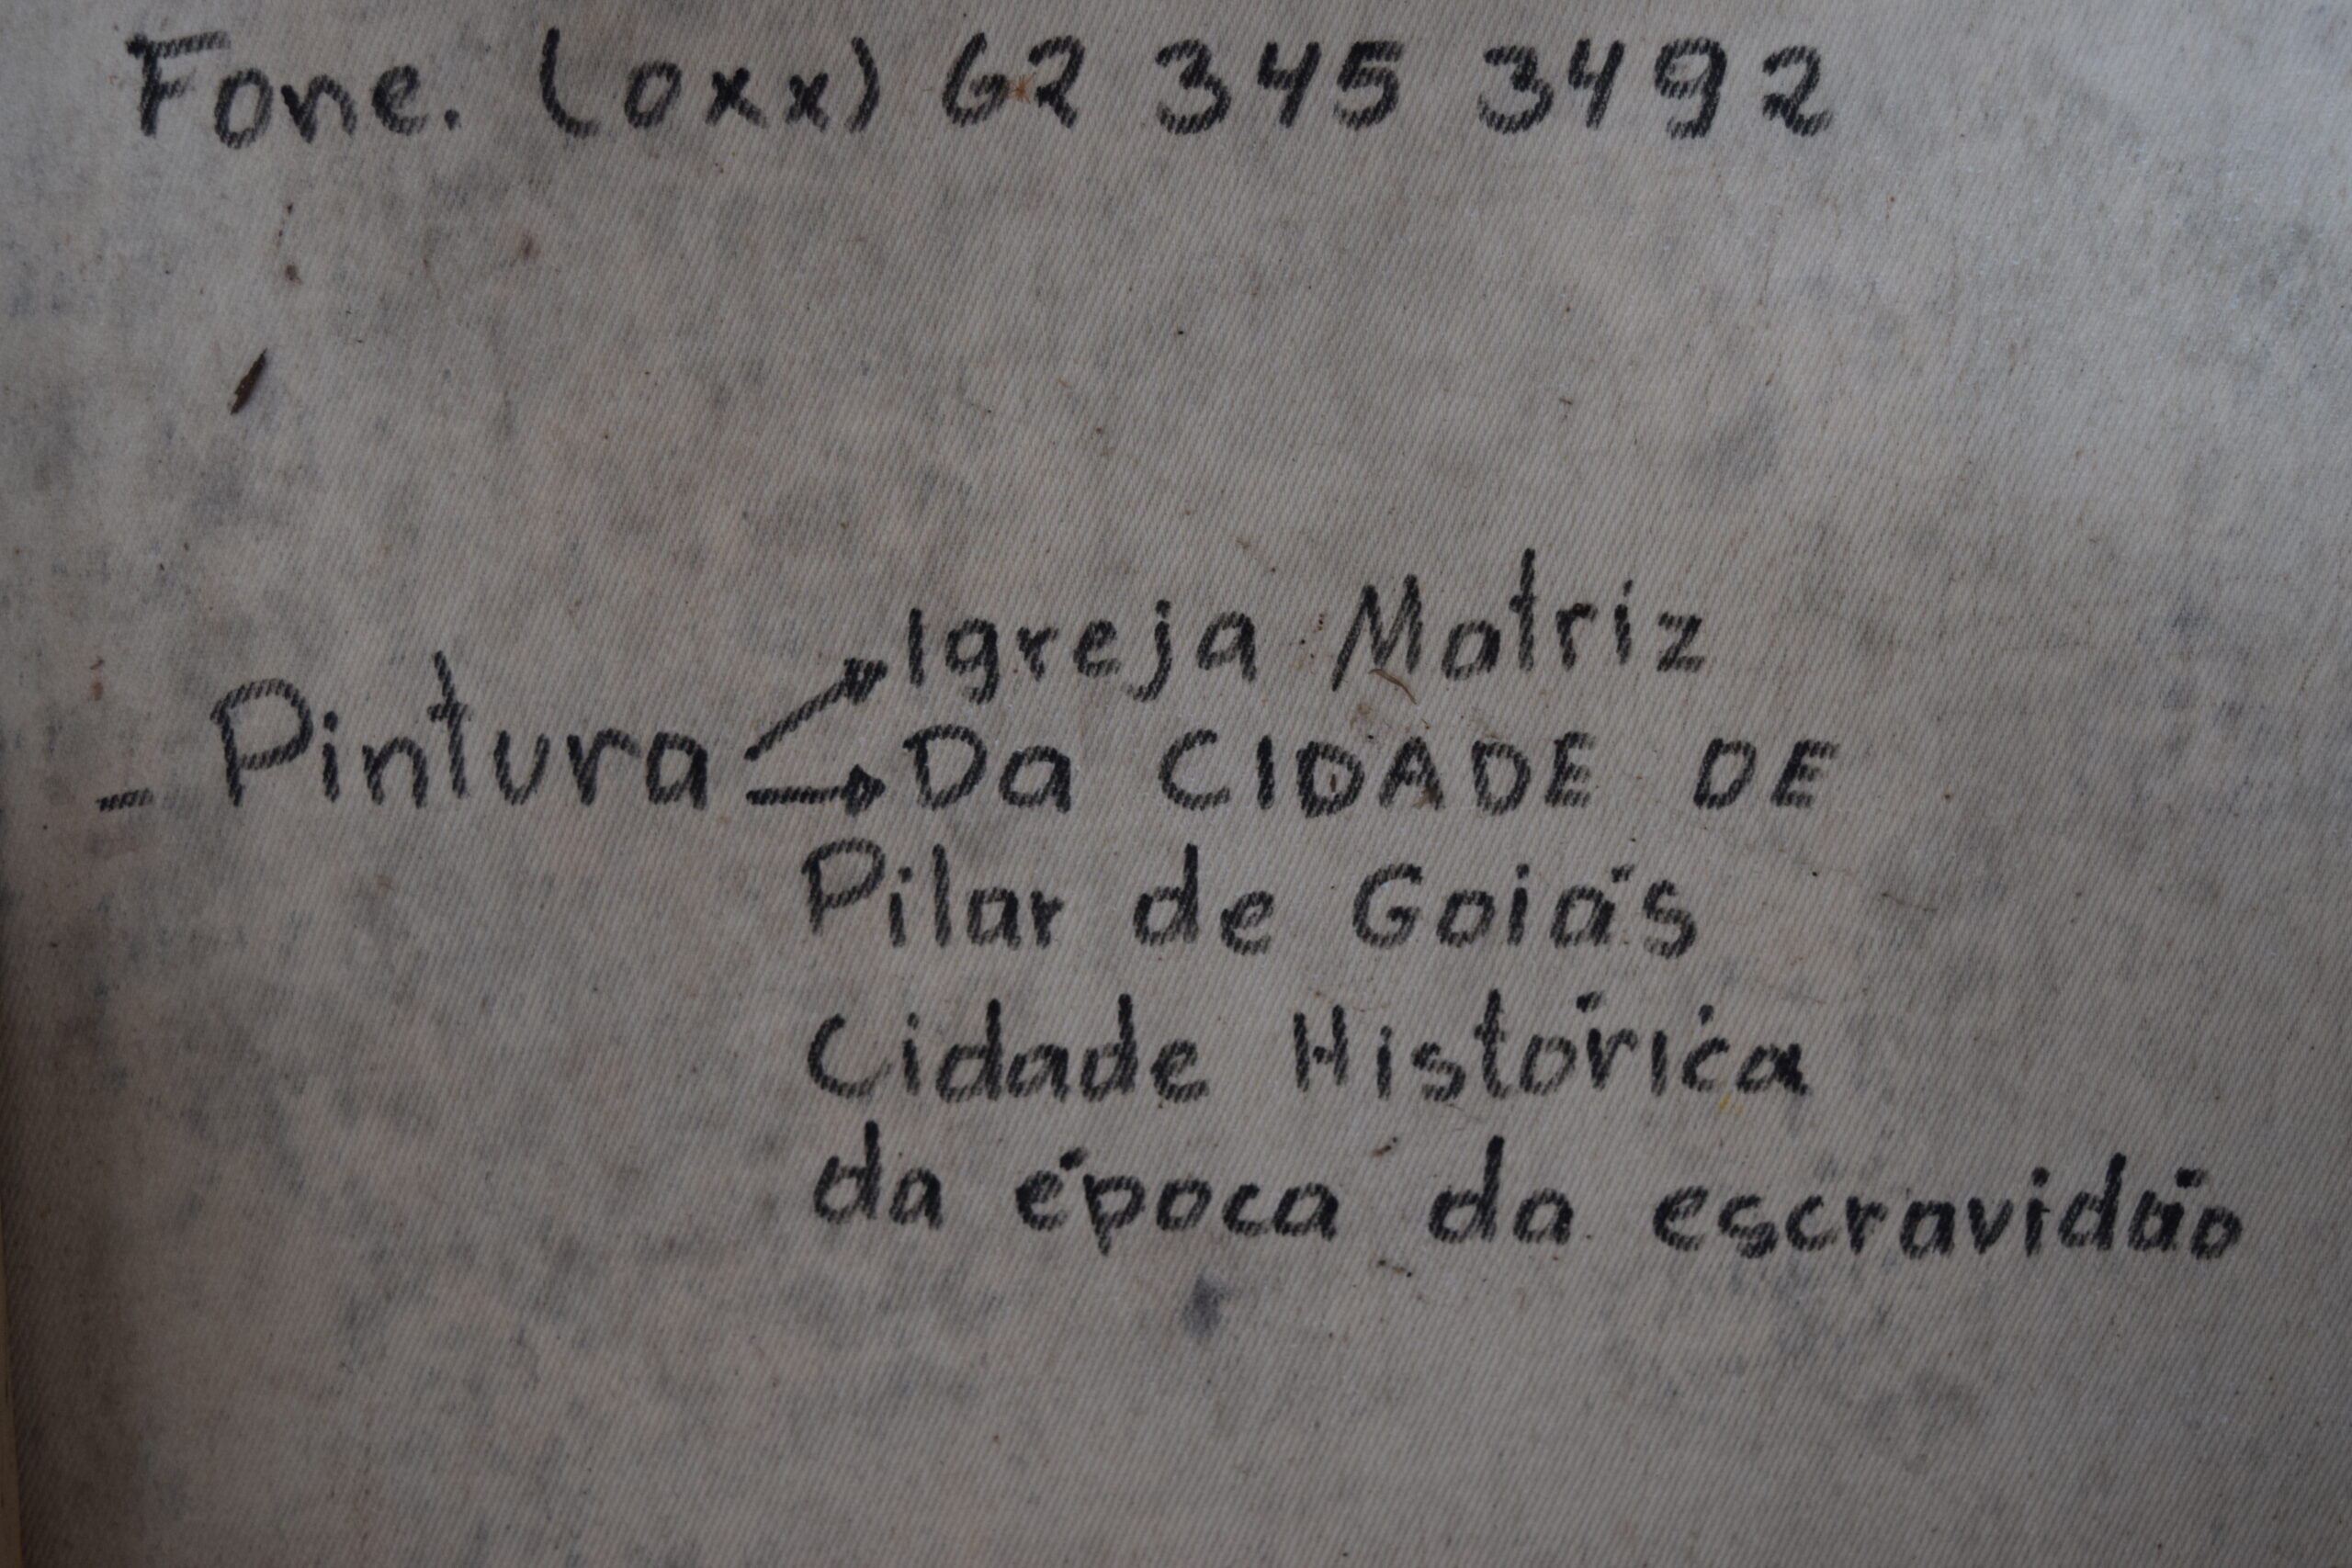 Fone. (oxx) 62 345 3492
Igreja Matriz
- Pintura Da CIDADE DE
Pilar de Goiás
Cidade Histórica
da época da escravidão